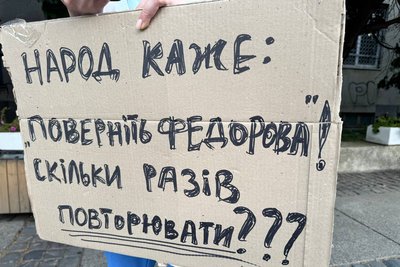 НАРОД КАЖЕ:
„ПОВЕРНІТЬ ФЕДОРОВА"!
СКІЛЬКИ РАЗІВ
ПОВТОРЮВАТИ???